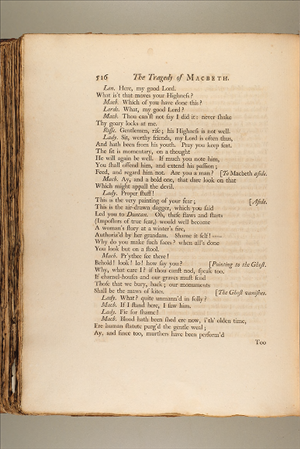 516 The Tragedy of MACBETH.
Len. Here, my good Lord.
What is't that moves your Highness?
Macb. Which of you have done this?
Lords. What, my good Lord?
Macb. Thou can'st not say I did it: never shake
Thy goary locks at me.
Rosse. Gentlemen, rise; his Highness is not well.
Lady. Sit, worthy friends, my Lord is often thus,
And hath been from his youth. Pray you keep seat.
The fit is momentary, on a thought
He will again be well. If much you note him,
You shall offend him, and extend his passion;
Feed, and regard him not. Are you a man? [To Macbeth aside.
Macb. Ay, and a bold one, that dare look on that
Which might appall the devil.
Lady. Proper stuff!
This is the very painting of your fear; [Aside.
This is the air-drawn dagger, which you said
Led you to Duncan. Oh, these flaws and starts
(Impostors of true fear,) would well become
A woman's story at a winter's fire,
Authoriz'd by her grandam. Shame it self!——
Why do you make such faces? when all's done
You look but on a stool.
Macb. Pr'ythee see there!
Behold! look! lo! how say you? [Pointing to the Ghost.
Why, what care I? if thou canst nod, speak too.
If charnel-houses and our graves must send
Those that we bury, back; our monuments
Shall be the maws of kites. [The Ghost vanishes.
Lady. What? quite unmann'd in folly?
Macb. If I stand here, I saw him.
Lady. Fie for shame!
Macb. Blood hath been shed ere now, i'th' olden time,
Ere human statute purg'd the gentle weal;
Ay, and since too, murthers have been perform'd
Too